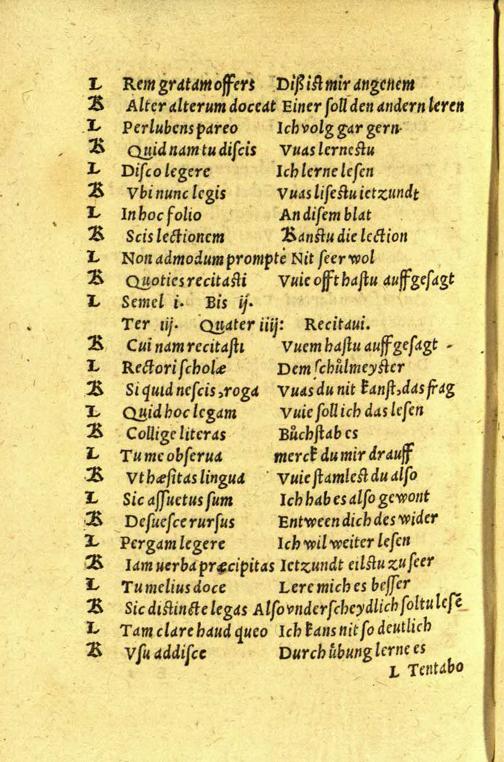 L Rem gratam offers Diß ist mir angenem
K Alter alterum doceat Einer soll den andern leren
L Perlubens pareo Ich volg gar gern.
K Quid nam tu discis Vuas lernestu
L Disco legere Ich lerne lesen
K Vbi nunc legis Vuas lisestu ietzundt
L In hoc folio An disem blat
K Scis lectionem Kanstu die lection
L Non admodum prompte Nit seer wol
K Quoties recitasti Vuie offt hastu auffgesagt
L Semel i. Bis ij.
Ter iij. Quater iiij: Recitaui.
K Cui nam recitasti Vuem hastu auffgesagt
L Rectori scholæ Dem schůlmeyster
K Si quid nescis, roga Vuas du nit kanst, das frag
L Quid hoc legam Vuie soll ich das lesen
K Collige literas Bůchstab es
L Tu me obserua merck du mir drauff
K Vt hæsitas lingua Vuie stamlest du also
L Sic assuetus sum Ich hab es also gewont
K Desuesce rursus Entween dich des wider
L Pergam legere Ich wil weiter lesen
K Iam uerba præcipitas Ietzundt eilstu zu seer
L Tu melius doce Lere mich es besser
K Sic distincte legas Also vnderscheydlich soltu lesẽ
L Tam clare haud queo Ich kans nit so deutlich
K Vsu addisce Durch übung lerne es
L Tentabo